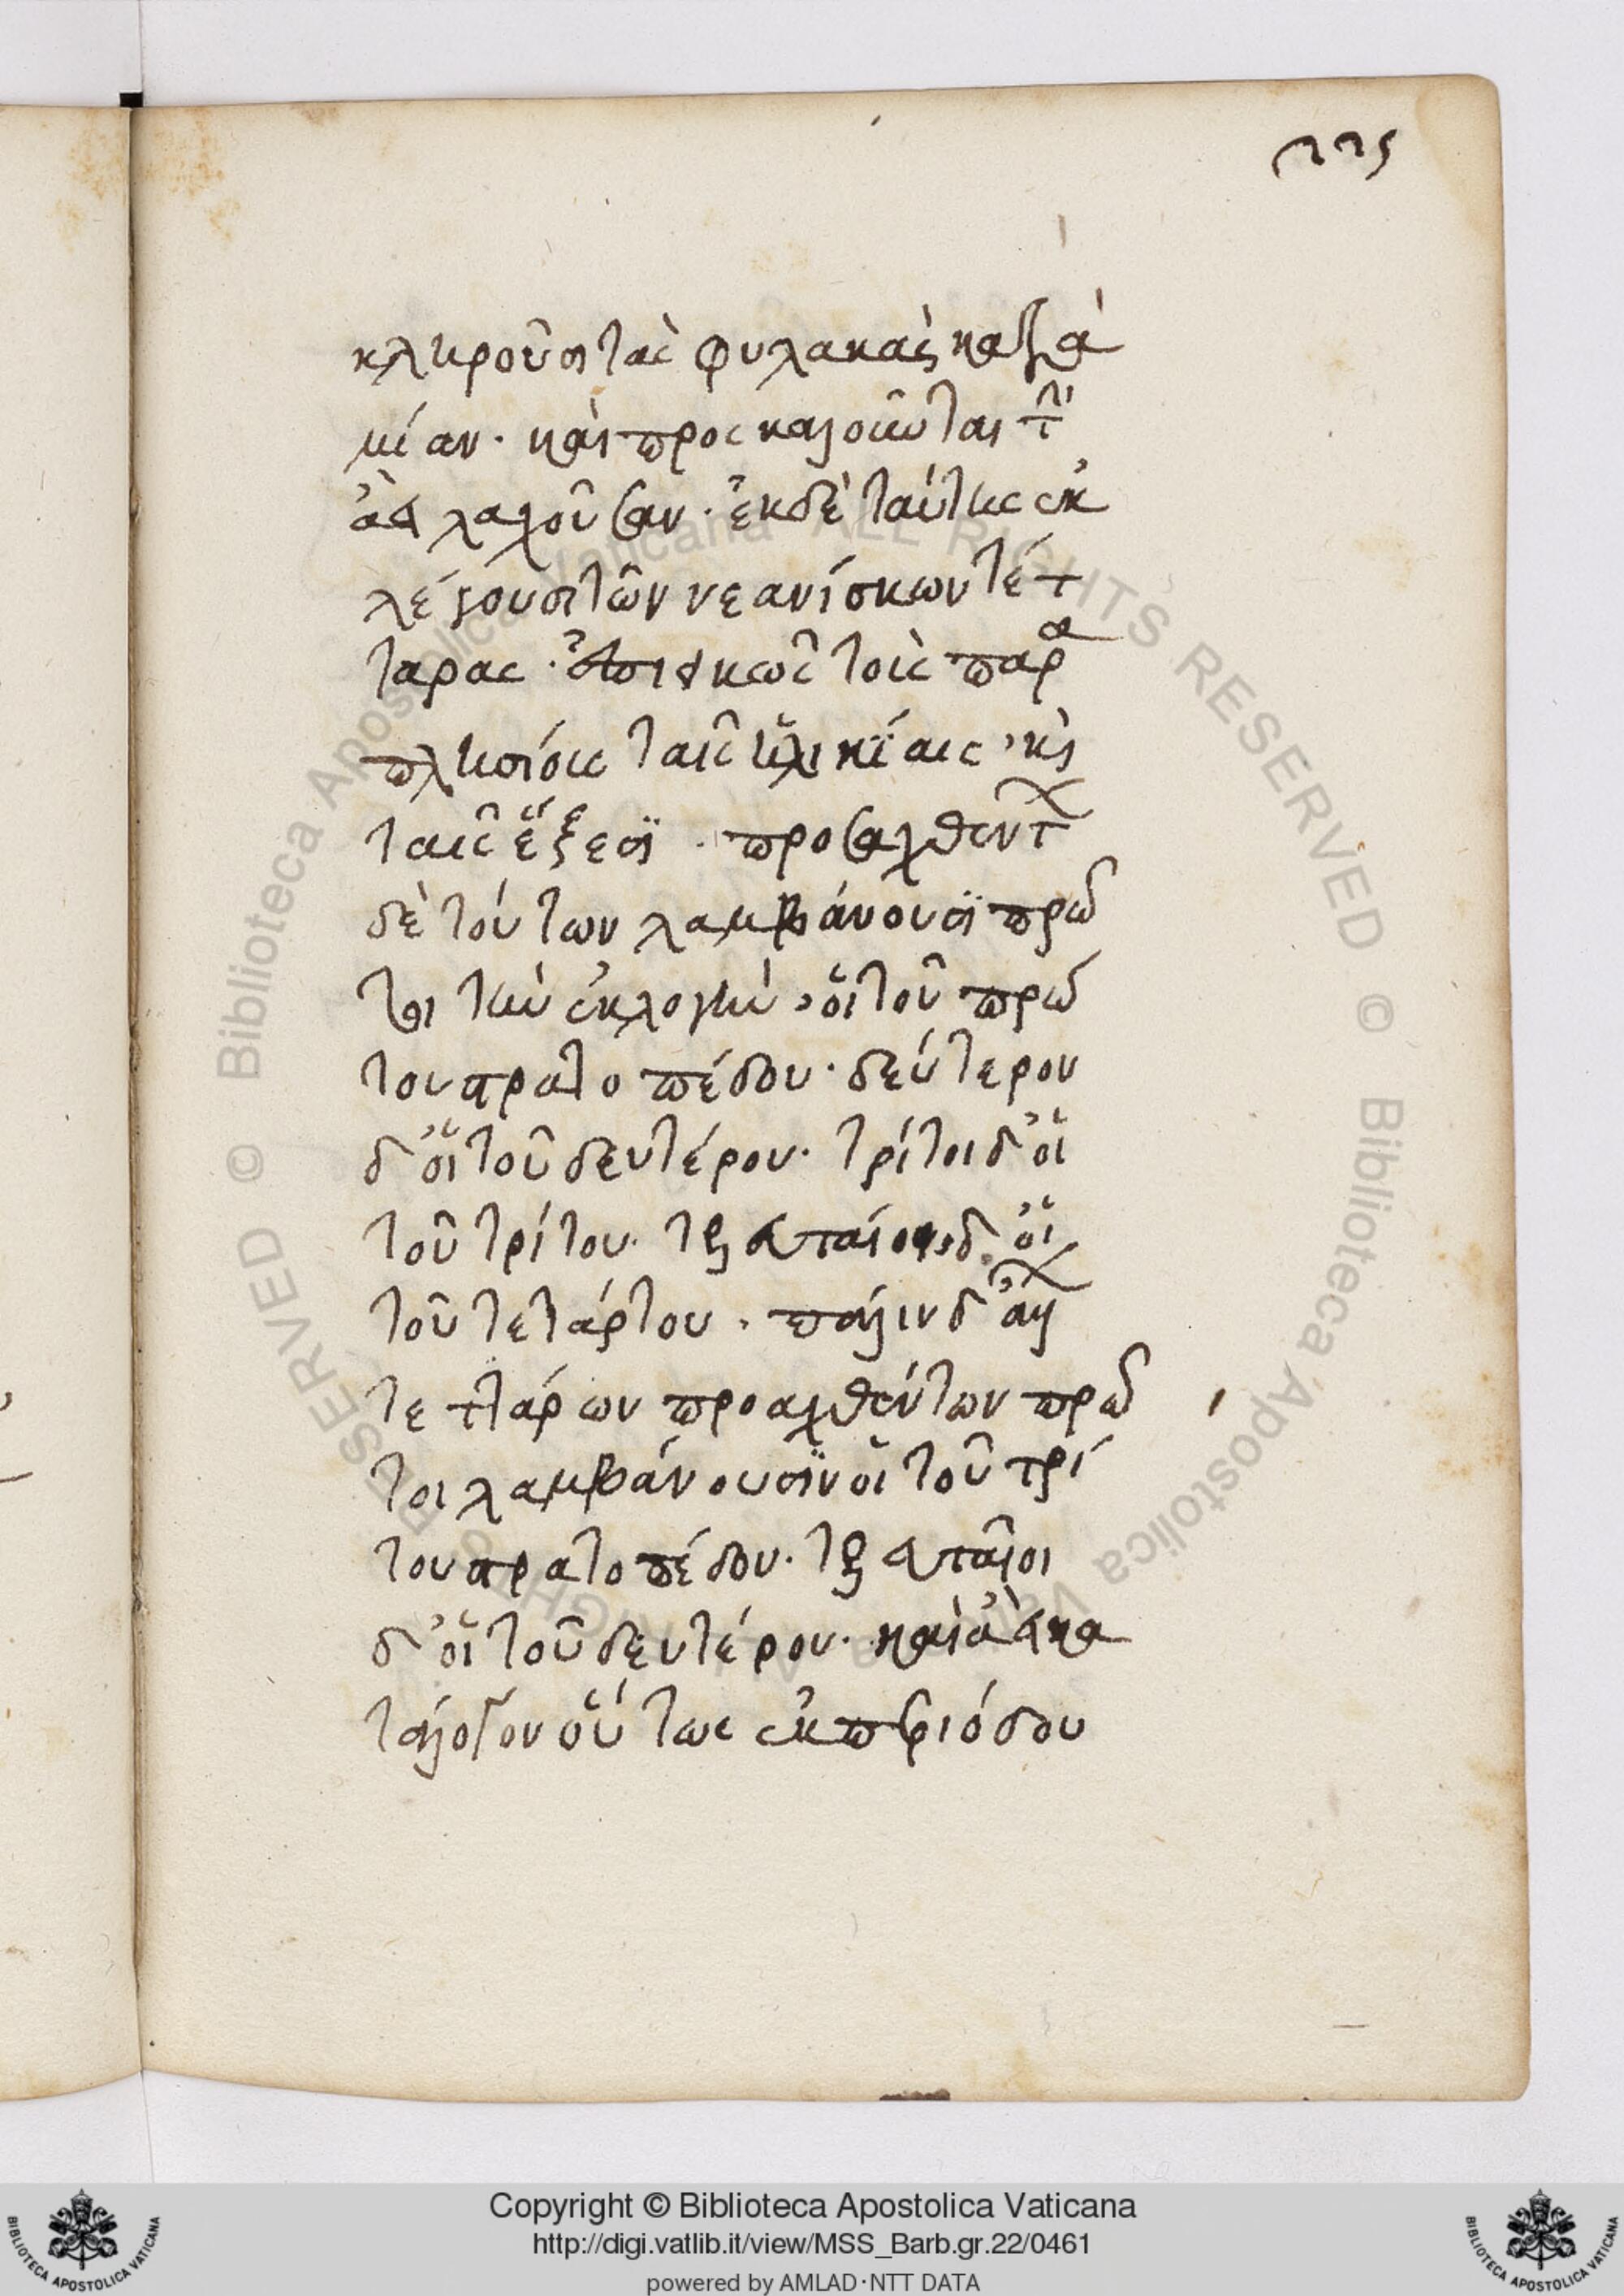 225
κληροῦσι τὰς φυλακὰς κατὰ
μίαν· καὶ προσκαλοῦνται τὴν
ἀεὶ λαχοῦσαν· ἐκ δὲ ταύτης ἐκ
λέγουσι τῶν νεανίσκων τέτ
ταρας· ἐπιεικῶς τοῖς παρα
πλησίοις ταῖς ἡλικίαις, καὶ
ταῖς ἕξεσϊ· προσαχθέντων
δὲ τούτων λαμβάνουσϊ πρῶ
τοι τὴν ἐκλογὴν, οἱ τοῦ πρώ
του στρατοπέδου· δεύτερον
δ' οἱ τοῦ δευτέρου· τρίτοι δ' οἱ
τοῦ τρίτου· τελευταῖοι δ' οἱ
τοῦ τετάρτου· πάλιν δ' ἄλλων
τεττάρων προαχθέντων πρῶ
τοι λαμβάνουσϊν οἱ τοῦ τρί
του στρατοπέδου· τελευταῖοι
δ' οἱ τοῦ δευτέρου· καὶ ἀεὶ κα
τὰ λόγον οὕτως ἐκ περιόδου
Copyright © Biblioteca Apostolica Vaticana
http://digi.vatlib.it/view/MSS_Barb.gr.22/0461
powered by AMLAD·NTT DATA